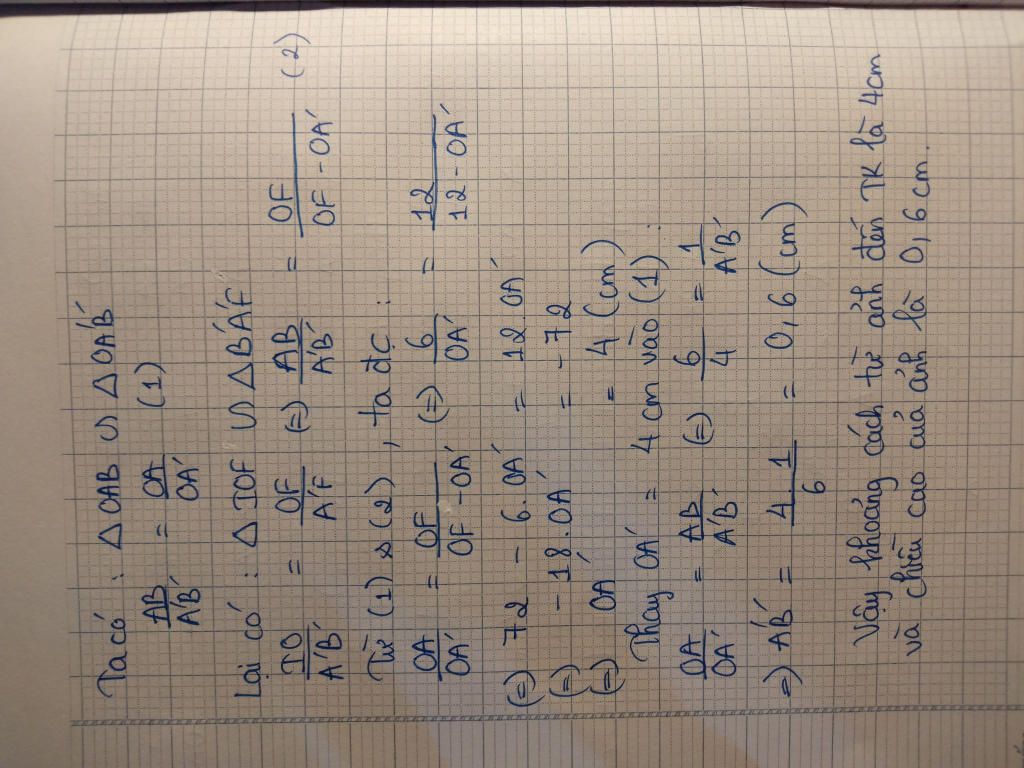 Ta có : Δ OAB ᔕ Δ OA'B'
AB/A'B' = OA/OA' (1)
Lại có : Δ IOF ᔕ Δ B'A'F
IO/A'B' = OF/A'F (=) AB/A'B' = OF/OF - OA' (2)
Từ (1) & (2) , ta đc :
OA/OA' = OF/OF - OA' (=) 6/OA' = 12/12 - OA'
(=) 72 - 6.OA' = 12.OA'
(=) - 18.OA' = - 72
(=) OA' = 4 (cm)
Thay OA' = 4cm vào (1) :
OA/OA' = AB/A'B' (=) 6/4 = 1/A'B'
=) A'B' = 4 1/6 = 0,6 (cm)
Vậy khoảng cách từ ảnh đến TK là 4cm
và chiều cao của ảnh là 0,6 cm.